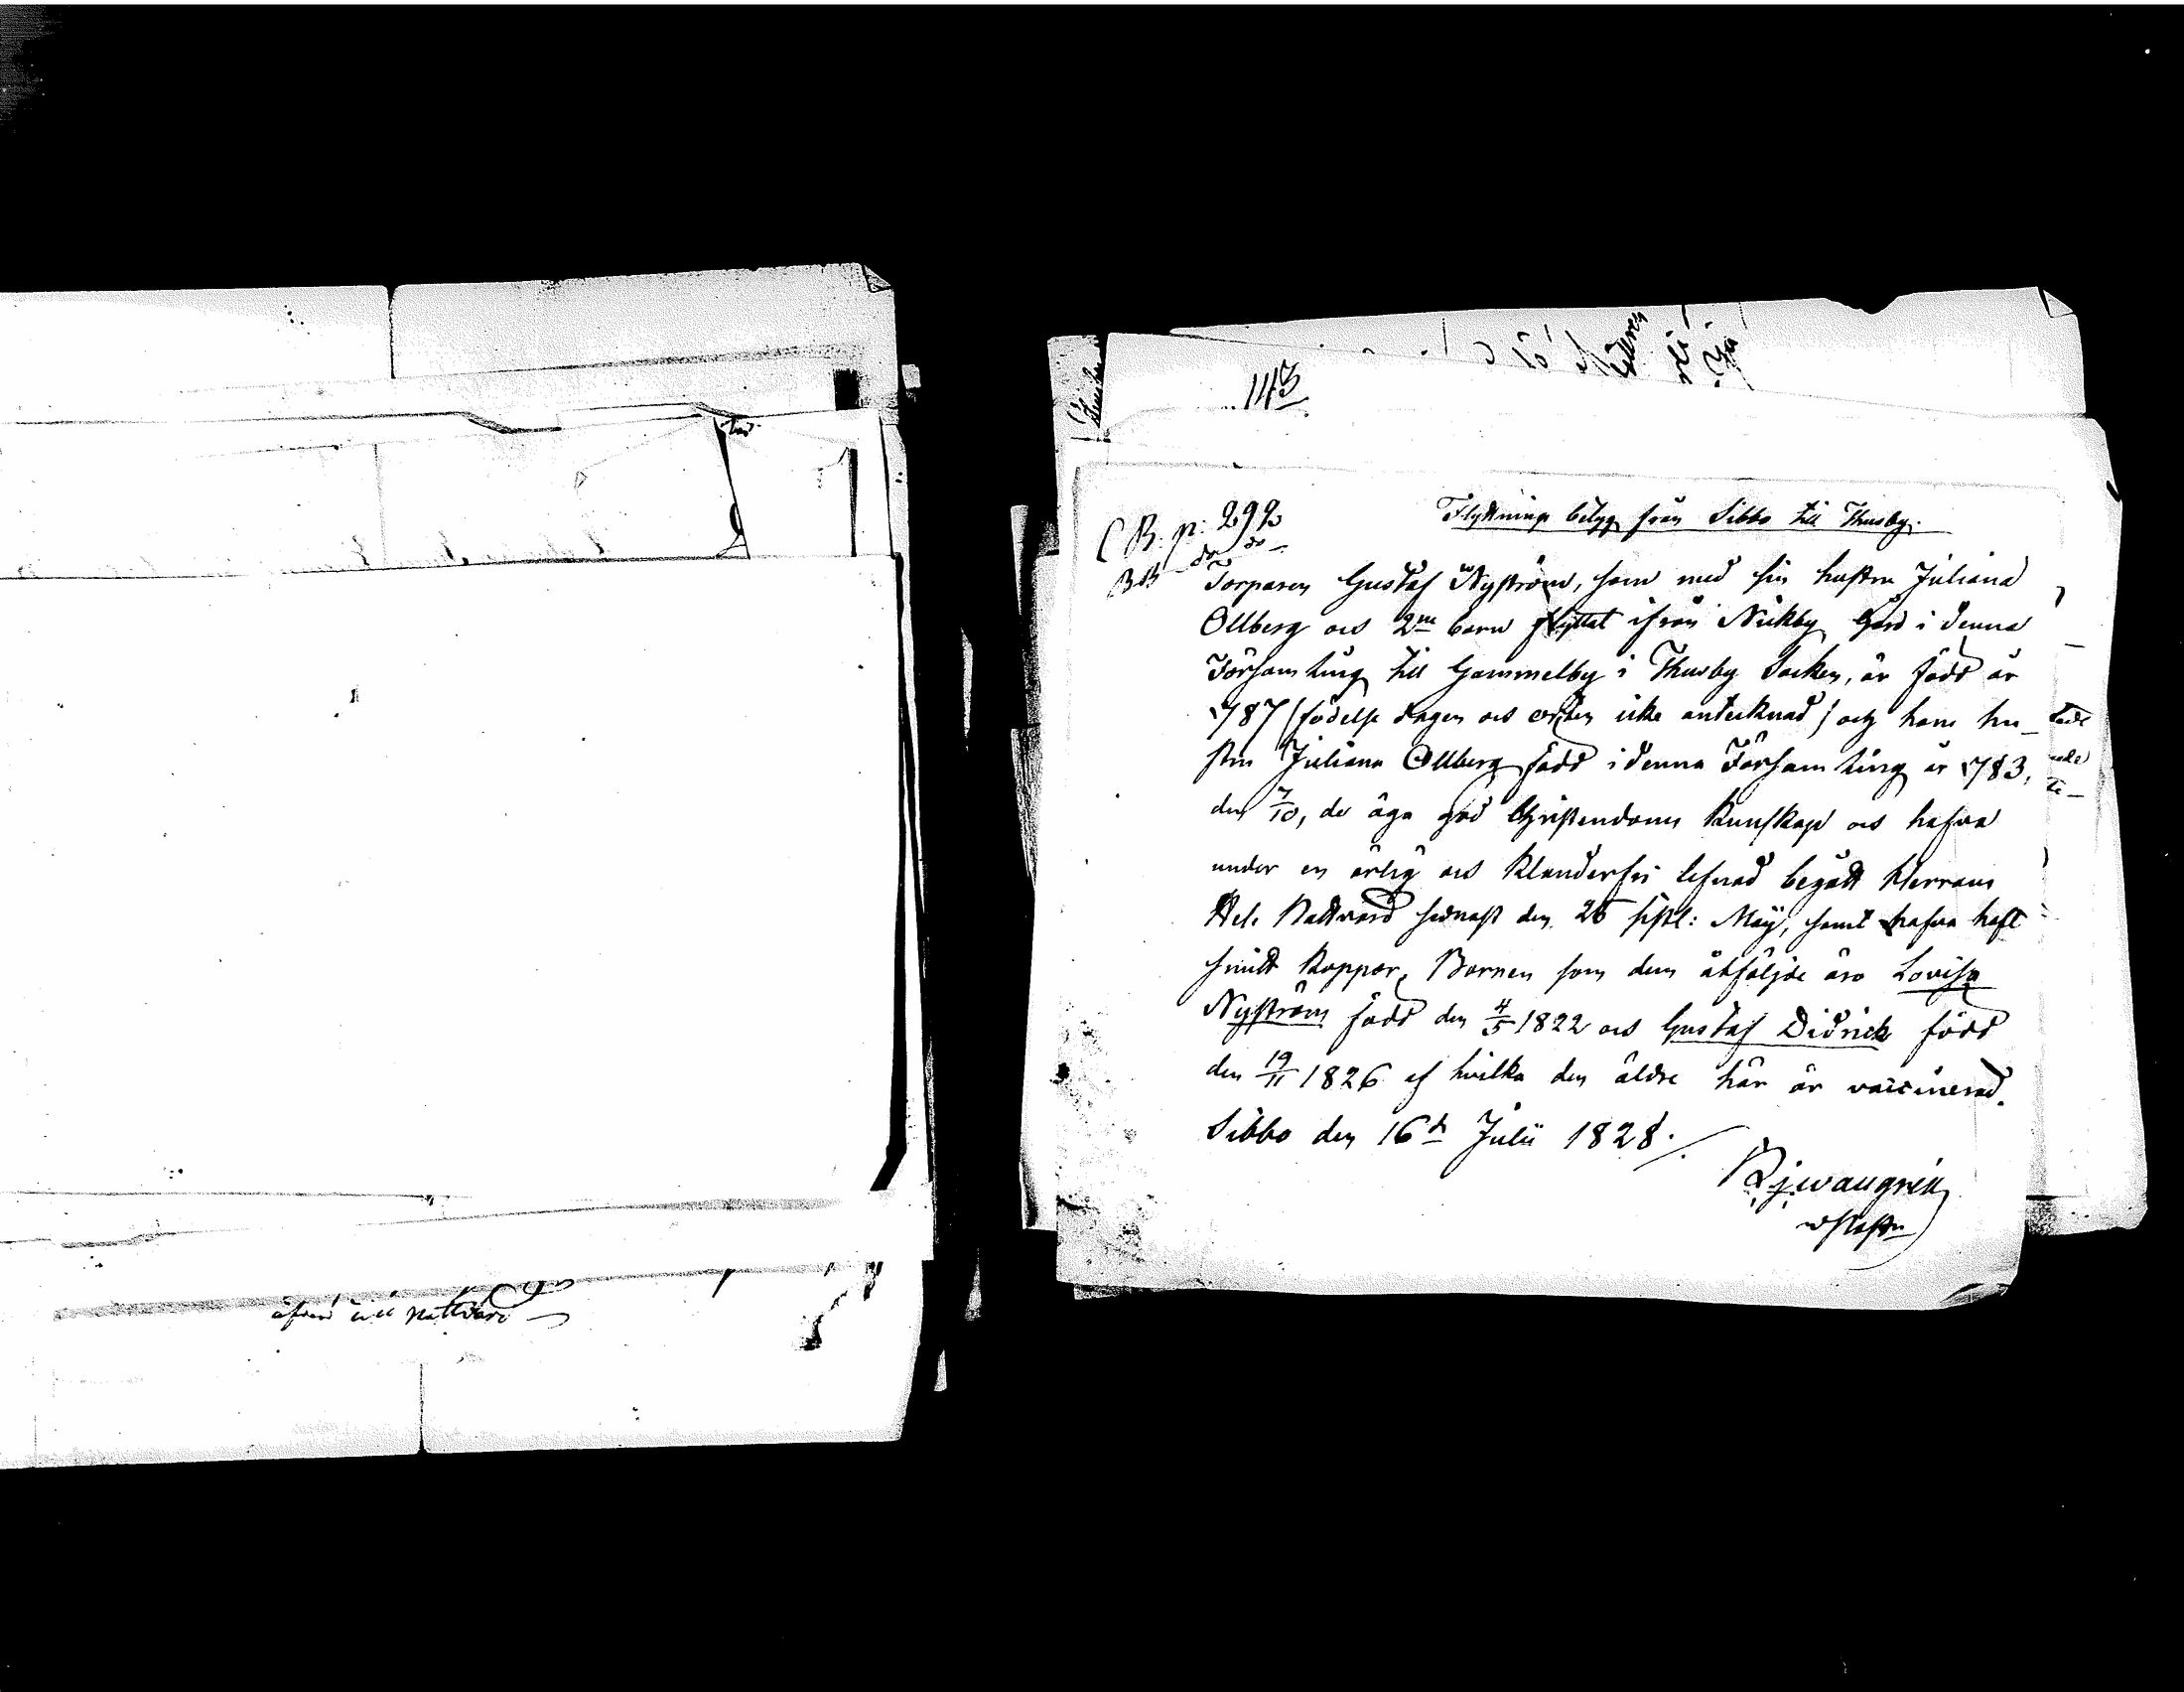 äfven till nattvard
143
C B. p: 292
BB do do
Flyttnings betyg från Sibbo till Thusby.
Torparen Gustaf Nyström, som med sin hustru Juliana
Ollberg och 2ne barn flyttat ifrån Nickby Gård i denna
Församling till Gammelby i Thusby Socken, är född år
1787 (födelse dagen och orten icke antecknad) och hans hu-
stru Juliana Ollberg född i denna Församling år 1783,
den 7/10, de äga god Christendoms Kunskap och hafva
under en ärlig och klanderfri lefnad begått Herrans
Hel. Nattvard sednast den 26 sistl: Maÿ, samt hafva haft
smitt Koppor, Barnen som dem åtföljde äro Lovisa
Nyström född den 4/5 1822 och Gustaf Didrick född
den 19/11 1826 af hvilka den äldre här är vaccinerad.
Sibbo den 16de Julii 1828.